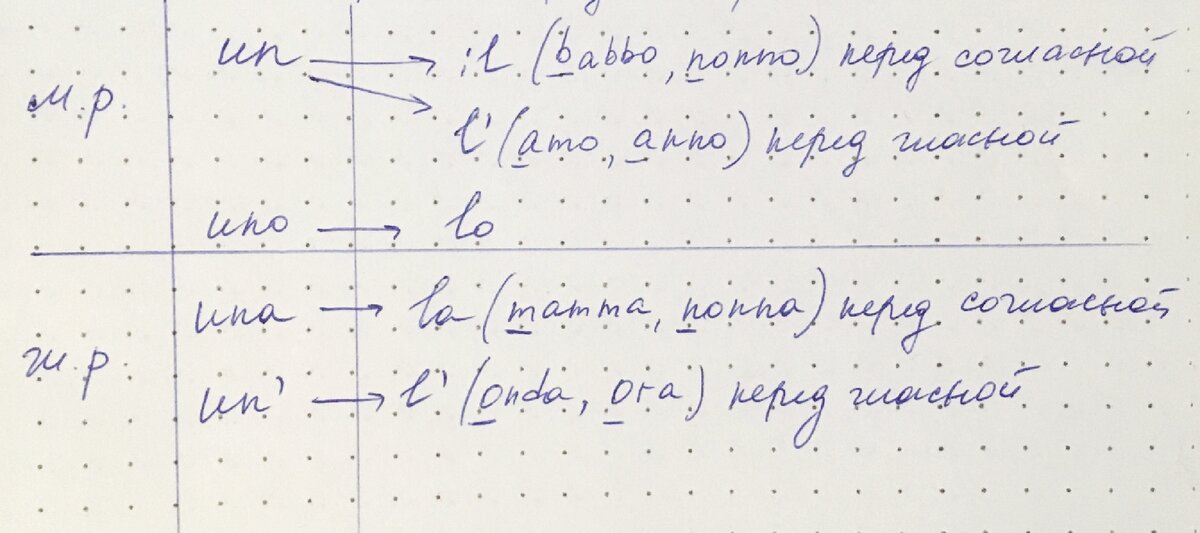 м.р.
un → il (babbo, nonno) перед согласной
l' (amo, anno) перед гласной
uno → lo
ж.р.
una → la (mamma, nonna) перед согласной
un' → l' (onda, ora) перед гласной